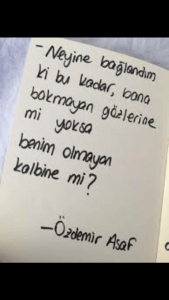 - Neyine bağlandım
ki bu kadar, bana
bakmayan gözlerine
mi yoksa
benim olmayan
kalbine mi?
-Özdemir Asaf